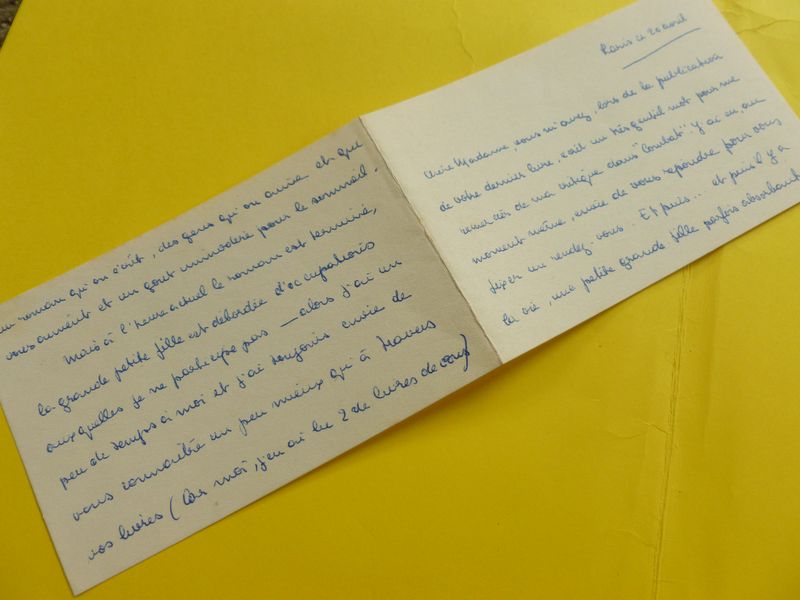 Paris ce 20 avril
Chère Madame, vous m'avez, lors de la publication
de votre dernier livre, écrit un très gentil mot pour me
remercier de ma critique dans "Combat". J'ai eu, au
moment même, envie de vous répondre pour vous
fixer un rendez-vous. Et puis... et puis il y a
la vie, une petite grande fille parfois absorbante,
un roman qu'on écrit, des gens qu'on aime et qui
vous aiment et un goût immodéré pour le sommeil.
Mais à l'heure actuelle le roman est terminé,
la grande petite fille est débordée d'occupations
auxquelles je ne participe pas — alors j'ai un
peu de temps à moi et j'ai toujours envie de
vous connaître un peu mieux qu'à travers
vos livres (Car moi, j'en ai lu 2 de livres de vous)